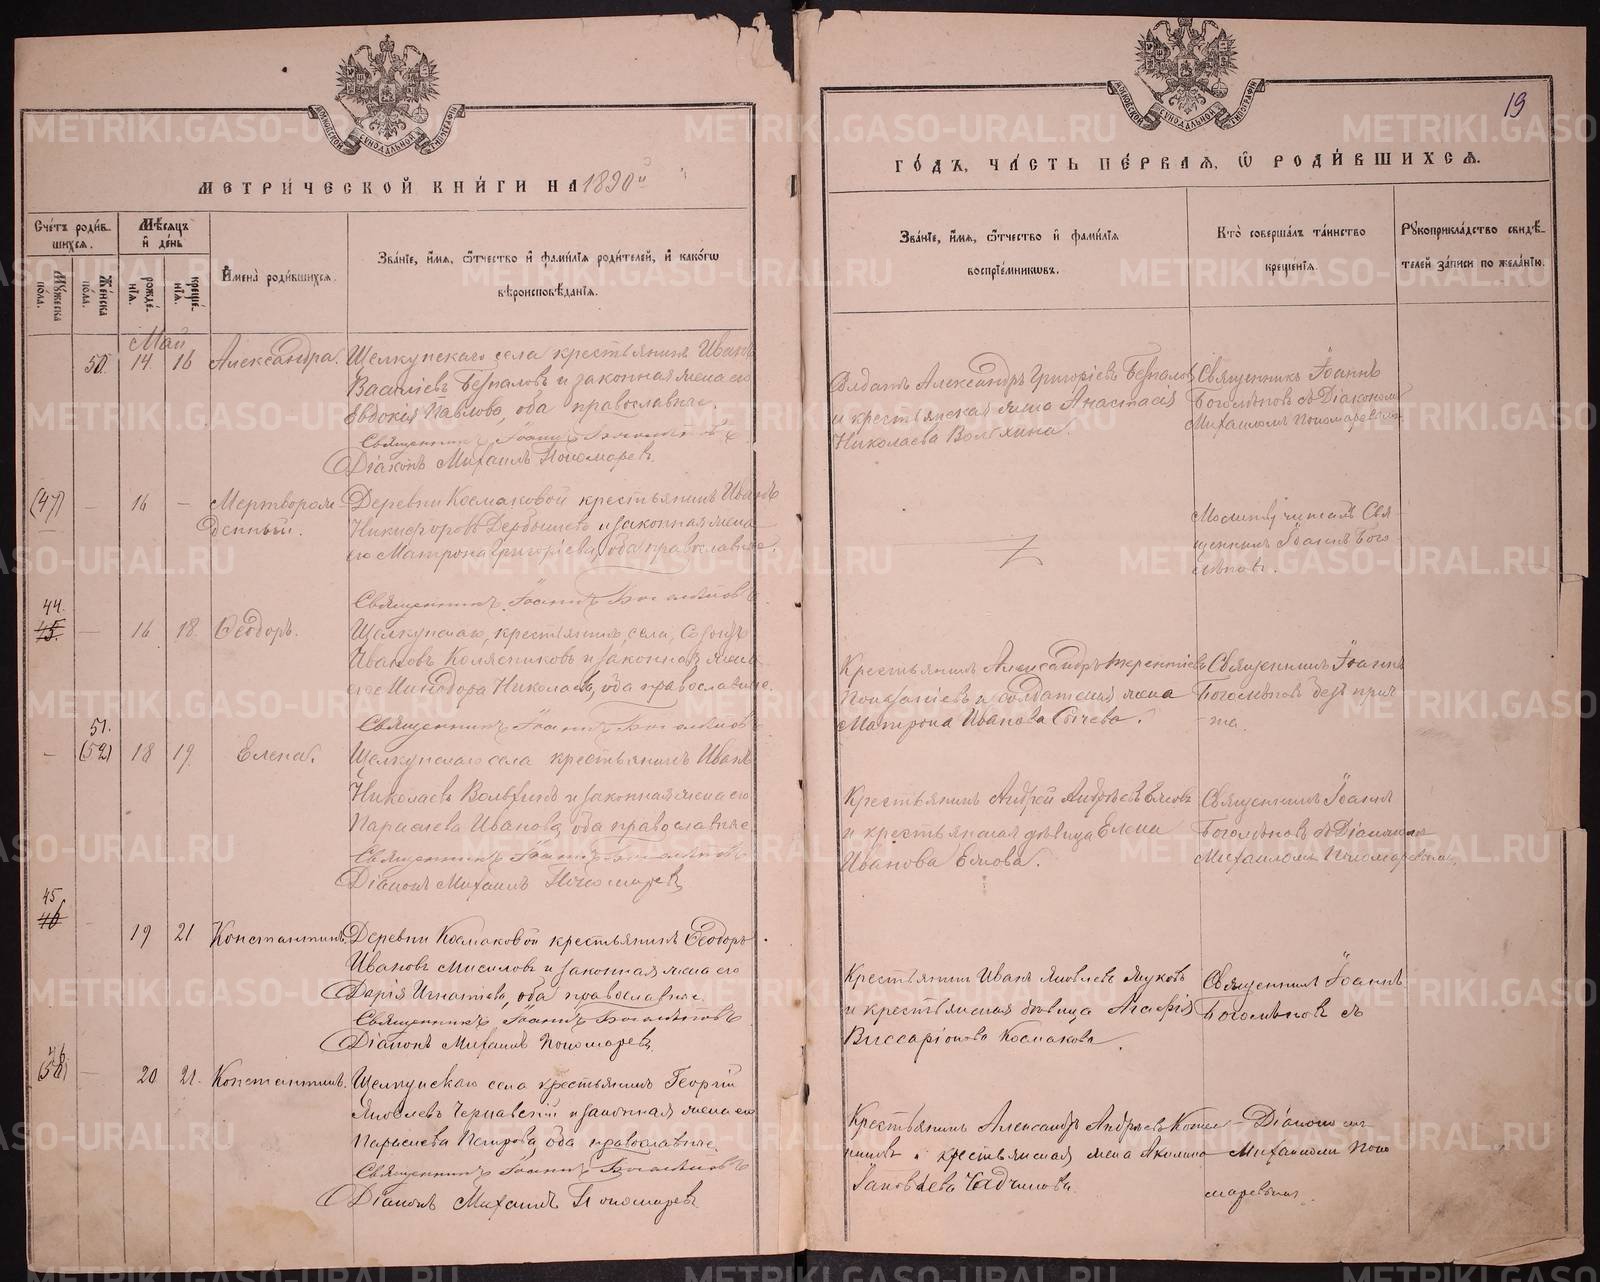 МЕТРИ́ЧЕСКОЙ КНИ́ГИ НА 1890й
Сче́тъ роди́в-
шихся.
Мѣ́сяцъ
и́ де́нь
Му́жеска
по́ла.
Же́нска
по́ла.
рожде́-
нїя.
креще́-
нїя.
И҆мена̀ роди́вшихся.
Зва́нїе, и҆́мя, ѻ҆́тчество и҆ фами́лїя роди́телей, и҆ како́гѡ
вѣроисповѣ́данїя.
Май
50. 14 16 Александра.
Щелкунскаго села крестьянинъ Иванъ
Василіевъ Безпаловъ и законная жена его
Евдокія Павлова, оба православные.
Священникъ Іоаннъ Боголѣповъ
Діаконъ Михаилъ Пономаревъ
(47) — 16 — Мертворож-
денный.
Деревни Космаковой крестьянинъ Иванъ
Никифоровъ Дербышевъ и законная жена
его Матрона Григоріева, оба православные.
Священникъ Іоаннъ Боголѣповъ
44.
45. — 16 18. Ѳеодоръ.
Щелкунскаго, крестьянинъ, села,
Ивановъ Колясниковъ и законная жена
его Минодора Николаева, оба православные.
Священникъ Іоаннъ Боголѣповъ
51.
— (52) 18 19. Елена.
Щелкунскаго села крестьянинъ Иванъ
Николаевъ Волхинъ и законная жена его
Параскева Иванова, оба православные.
Священникъ Іоаннъ Боголѣповъ
Діаконъ Михаилъ Пономаревъ
45
46
19 21 Константинъ.
Деревни Космаковой крестьянинъ Ѳеодоръ
Ивановъ Мисиловъ и законная жена его
Дарія Игнатіева, оба православные.
Священникъ Іоаннъ Боголѣповъ
Діаконъ Михаилъ Пономаревъ.
46
— 20 21. Константинъ.
Щелкунскаго села крестьянинъ Георгій
Яковлевъ Чернавскій и законная жена его
Параскева Петрова, оба православные.
Священникъ Іоаннъ Боголѣповъ
Діаконъ Михаилъ Пономаревъ
19
ГО́ДЪ, ЧА́СТЬ ПЕ́РВАЯ, Ѡ҆ РОДИ́ВШИХСЯ.
Зва́нїе, и҆́мя, ѻ҆́тчество и҆ фами́лїя
воспрїе́мникѡвъ.
Кто̀ соверша́лъ та́инство
креще́нїя.
Рукоприкла́дство свидѣ́-
телей за́писи по жела́нїю.
Солдатъ Александръ Григоріевъ Безпаловъ
и крестьянская жена Анастасія
Николаева Волхина.
Священникъ Іоаннъ
Боголѣповъ съ Діакономъ
Михаиломъ Пономаревымъ
Молитву читалъ Свя-
щенникъ Іоаннъ Бого-
лѣповъ.
Крестьянинъ Александръ Терентіевъ
и солдатская жена
Матрона Иванова Сычева.
Священникъ Іоаннъ
Боголѣповъ безъ прич-
та.
Крестьянинъ Андрей Андреевъ Елховъ
и крестьянская дѣвица Елена
Иванова Елхова.
Священникъ Іоаннъ
Боголѣповъ съ Діакономъ
Михаиломъ Пономаревымъ.
Крестьянинъ Иванъ Яковлевъ Жуковъ
и крестьянская дѣвица Агафія
Виссаріонова Космакова.
Священникъ Іоаннъ
Боголѣповъ съ
Крестьянинъ Александръ Андреевъ
и крестьянская жена Акилина
Іаковлева
Діакономъ
Михаиломъ Поно-
маревымъ.
METRIKI.GASO-URAL.RU